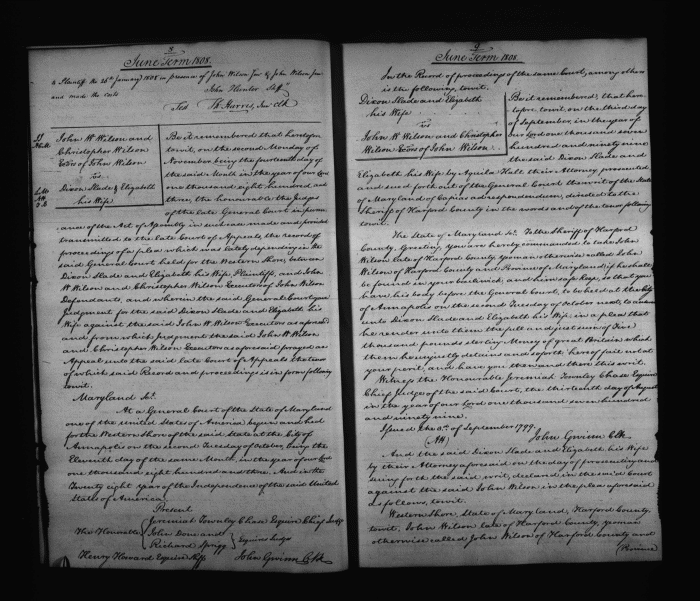 8
June Term 1808.
to Plaintiff the 26th January 1808 in presence of John Wilson Junr & John Wilson
and made the costs
John Hunter Shff
Test Th Harris, Junr Clk
John W Wilson and
Christopher Wilson
Exors of John Wilson
vs
Dixon Slade & Elizabeth
his Wife
Be it remembered that heretofore
towit, on the second Monday of
November being the fourteenth day of
the said Month in the year of our Lord
one thousand eight hundred and
three, the honourable the Judges
of the late General Court in pursu
ance of the Act of Assembly in such case made and provided
transmitted to the late Court of Appeals, the record of
proceedings of a plea which was lately depending in the
said General Court held for the Western Shore, between
Dixon Slade and Elizabeth his Wife Plaintiffs, and John
W Wilson and Christopher Wilson Executors of John Wilson
Defendants, and wherein the said General Court gave
Judgment for the said Dixon Slade and Elizabeth his
Wife against the said John W. Wilson Executors as aforesaid
and from which Judgment the said John W Wilson
and Christopher Wilson Executors as aforesaid prayed an
Appeal unto the said late Court of Appeals the tenor
of which said Record and proceedings is in form following
towit.
Maryland Sct.
At a General Court of the State of Maryland
one of the united States of America begun and held
for the Western Shore of the said State at the City of
Annapolis on the second Tuesday of October, being the
Eleventh day of the same Month, in the year of our Lord
one thousand eight hundred and three. And in the
Twenty eight year of the Independence of the said United
States of America.
Present
The Honorable
Jeremiah Townley Chase Esquire Chief Judge
John Done and
Richard Sprigg
Esquires Judges
Henry Howard Esquire Shff
John Gwinn Clk
9
June Term 1808.
In the Record of proceedings of the same Court, among others
is the following, towit.
Dixon Slade and Elizabeth
his Wife
vs
John W Wilson and Christopher
Wilson Exors of John Wilson
Be it remembered, that here
tofore towit, on the third day
of September, in the year of
our Lord one thousand seven
hundred and ninety nine
the said Dixon Slade and
Elizabeth his Wife by Aquila Hall their Attorney prosecuted
and sued forth out of the General Court the writ of the State
of Maryland of Capias ad respondendum, directed to the
Sheriff of Harford County in the words and of the tenor following
towit.
The State of Maryland Sc. To the Sheriff of Harford
County, Greeting, you are hereby commanded to take John
Wilson late of Harford County yeoman otherwise called John
Wilson of Harford County and Province of Maryland if he shall
be found in your bailiwick, and him safe keep, so that you
have his body before the General Court, to be held at the City
of Annapolis on the second Tuesday of October next, to answer
unto Dixon Slade and Elizabeth his Wife in a plea that
he render unto them the full and just sum of Five
thousand pounds sterling Money of great Britain which
them he unjustly detains and so forth hereof fail not at
your peril, and have you then and there this writ.
Witness the Honourable Jeremiah Townley Chase Esquire
Chief Judge of the said Court, the thirteenth day of August
in the year of our Lord one thousand seven hundred
and ninety nine.
Issued the 3d of September 1799.
(AH)
John Gwinn Clk.
And the said Dixon Slade and Elizabeth his Wife
by their Attorney aforesaid on the day of prosecuting and
suing forth the said writ, declared in the said Court
against the said John Wilson in the plea aforesaid
as follows, towit.
Western Shore, State of Maryland, Harford County.
towit. John Wilson late of Harford County, yeoman
otherwise called John Wilson of Harford County and
(Province